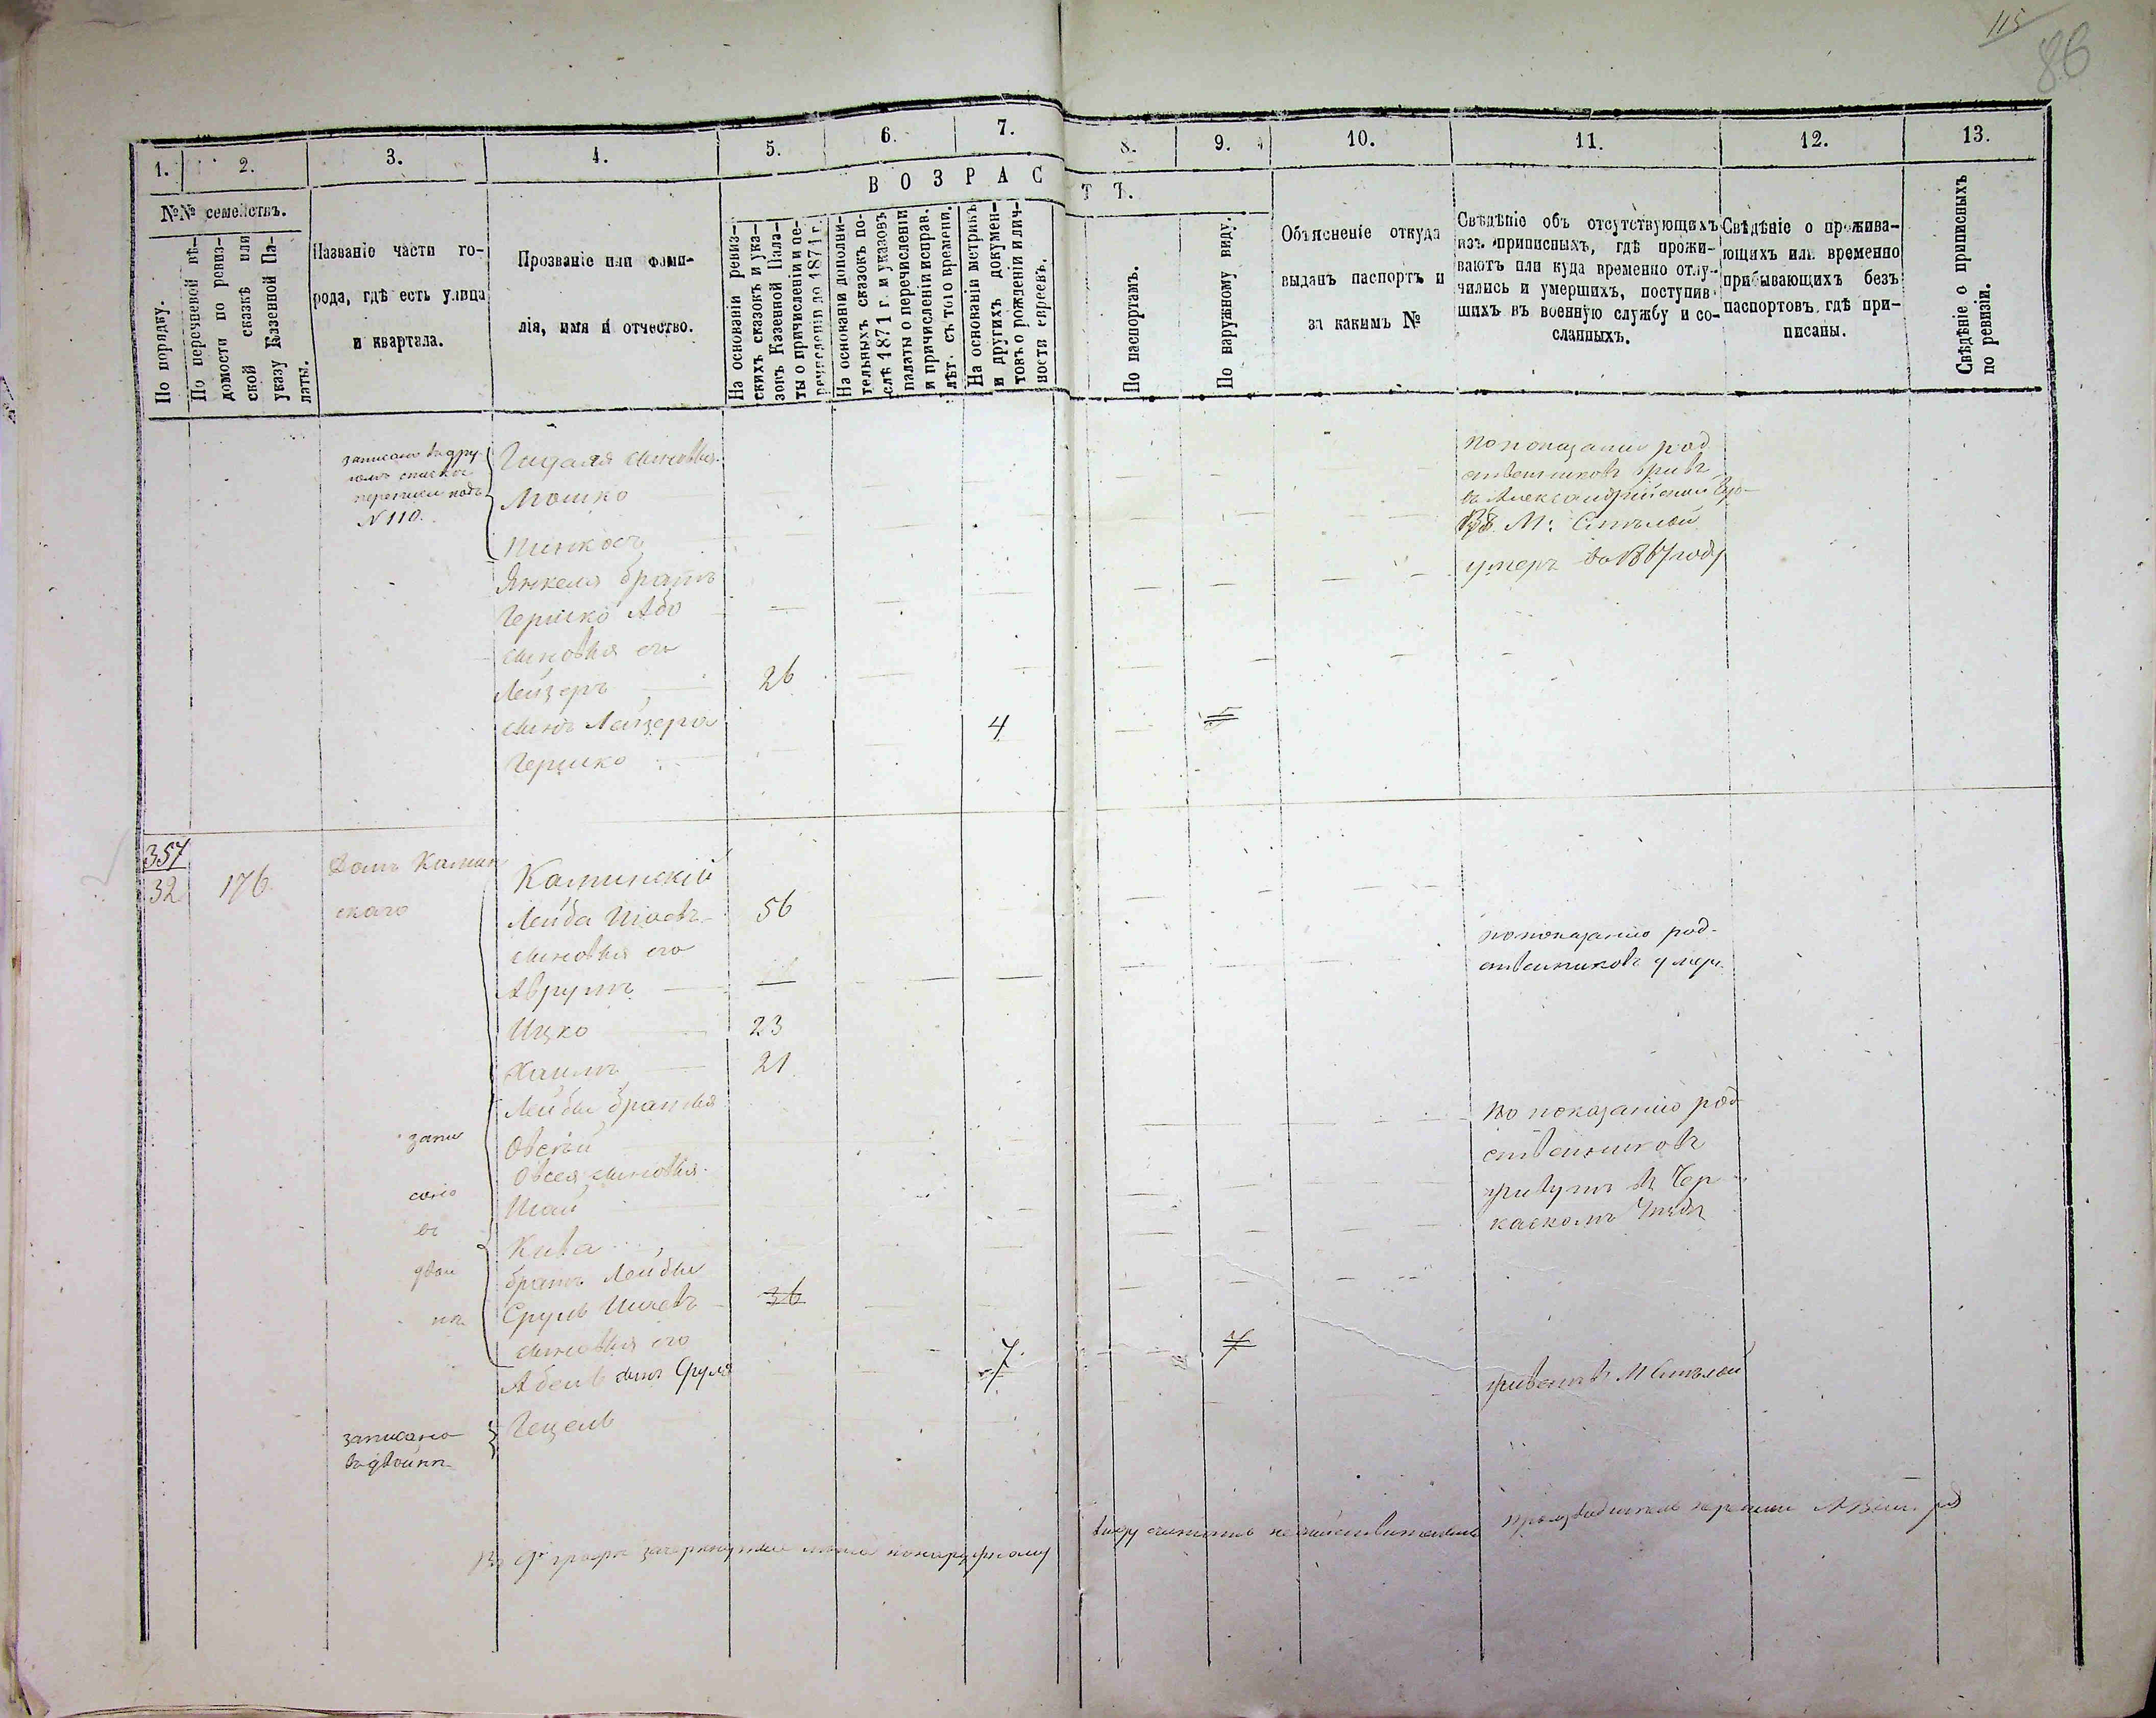 115
86
1.
2.
3.
4.
5.
6.
7.
8.
9.
10.
11.
12.
13.
№№ семействъ.
ВОЗРАСТЪ.
По порядку.
По перечневой вѣ-
домости по ревиз-
ской сказкѣ или
указу Казенной Па-
латы.
Названіе части го-
рода, гдѣ есть улица
и квартала.
Прозваніе или фами-
лія, имя и отчество.
На основаніи ревиз-
скихъ сказокъ и ука-
зовъ Казенной Пала-
ты о причисленіи и пе-
речисленіи до 1871 г.
На основаніи дополни-
тельныхъ сказокъ по-
слѣ 1871 г. и указовъ
палаты о перечисленіи
и причисленіи исправ.
лѣт. съ того времени.
На основаніи метрикъ
и другихъ докумен-
товъ о рожденіи и лич-
ности евреевъ.
По паспортамъ.
По наружному виду.
Объясненіе откуда
выданъ паспортъ и
за какимъ №
Свѣдѣніе объ отсутствующихъ
изъ приписныхъ, гдѣ прожи-
ваютъ или куда временно отлу-
чились и умершихъ, поступив-
шихъ въ военную службу и со-
сланныхъ.
Свѣдѣніе о прожива-
ющихъ или временно
прибывающихъ безъ
паспортовъ, гдѣ при-
писаны.
Свѣдѣніе о приписныхъ
по ревизіи.
записано въ дру-
гомъ спискѣ
переписи подъ
N 110.
Гидаля сыновья
Мошко
Пинкосъ
Янкеля братъ
Гершко Або
сыновья его
Лейзеръ 26
сынъ Лейзера
Гершко 4 5
по показанію род
ственниковъ живъ
въ Александрійскомъ
М: Снѣлой
умеръ въ 1867 году
357
32 176
Домъ Камин
скаго
Каминскій
Лейба Шіовъ 56
сыновья его
Аврумъ
Ицко 23
Хаимъ 21
Лейбы братья
Овсѣй
Овсея сыновья
Шая
Кива
братъ Лейбы
Сруль Шіовъ 36
сыновья его
Абель сынъ Сруля 7 7
Гецель
запи
сано
въ
двой
нѣ
записано
въ двойнѣ
по показанію род-
ственниковъ умеръ
по показанію род
ственниковъ
живутъ въ Чер
каскомъ уѣздѣ
живетъ въ М Смѣлой
Въ 9й графѣ зачеркнутые лѣта по наружному
виду считать недѣйствительными
Производитель переписи